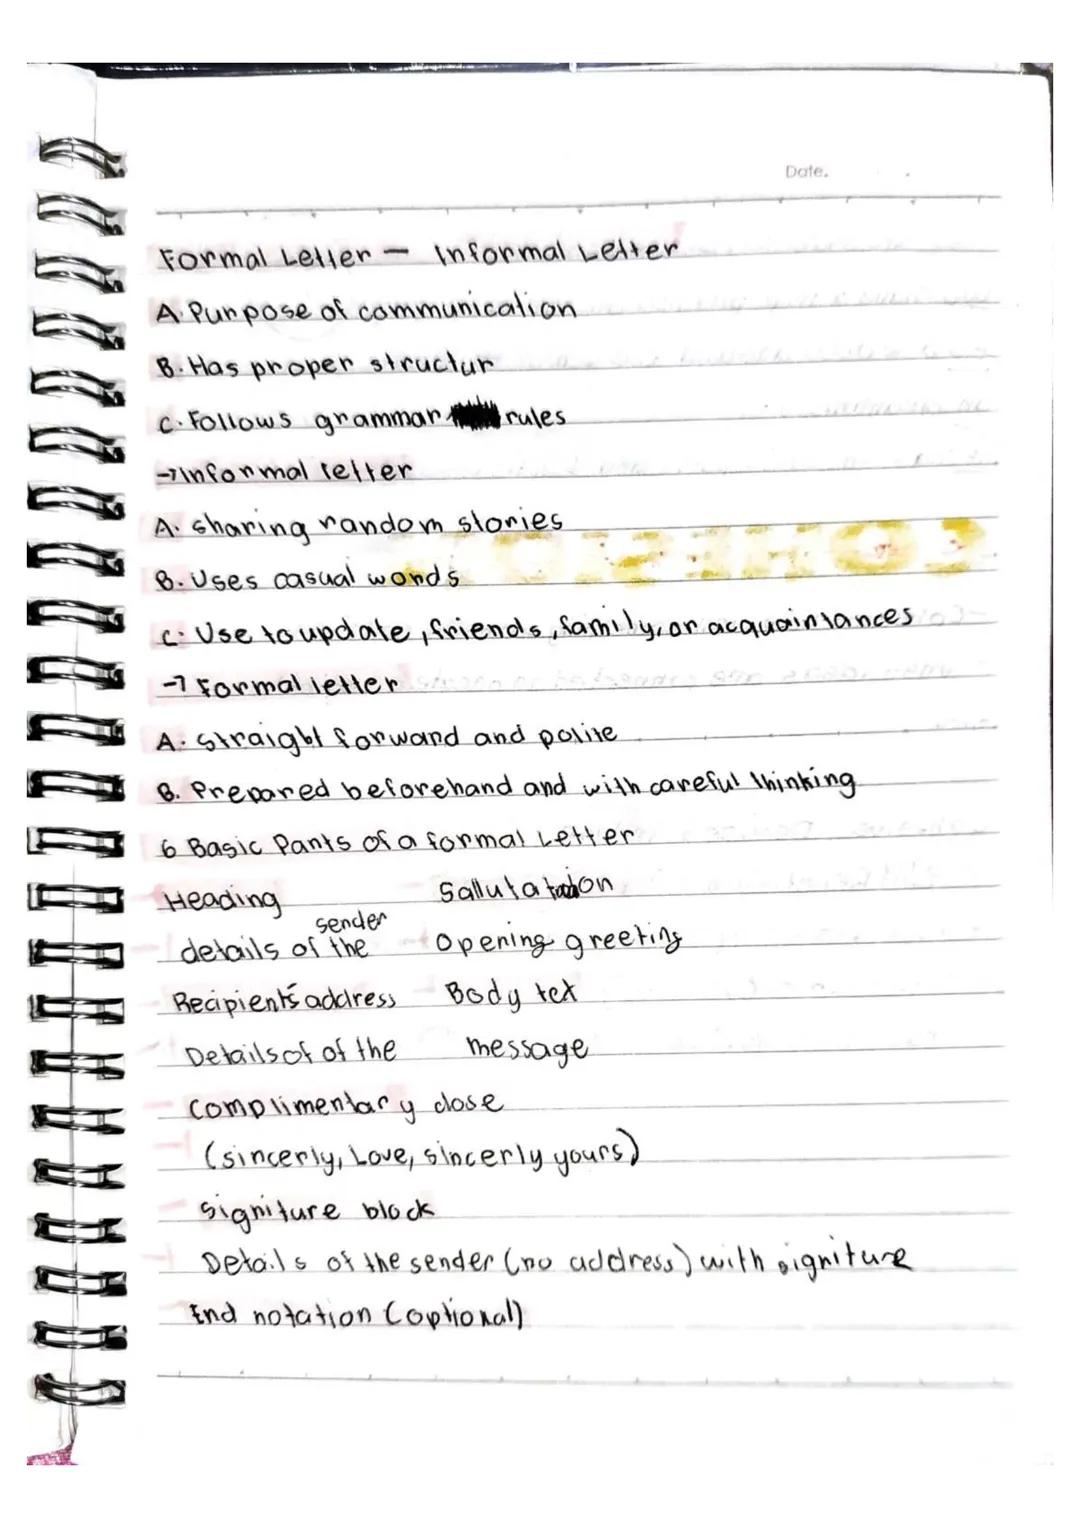 Date.
Formal Letter - Informal Letter
A. Purpose of communication
B. Has proper structur
C. Follows grammar rules
→Informal letter
A. sharing random stories
B. Uses casual words
C. Use to update, friends, family, or acquaintances
→ Formal letter
A. straight forward and polite
B. Prepared beforehand and with careful thinking
6 Basic Parts of a formal Letter
Heading Sallutation
details of the sender Opening greeting
Recipient's address Body tex
Details of of the message
Complimentary close
(sincerly, Love, sincerly yours)
signiture block
Details of the sender (no address) with signiture
End notation (optional)